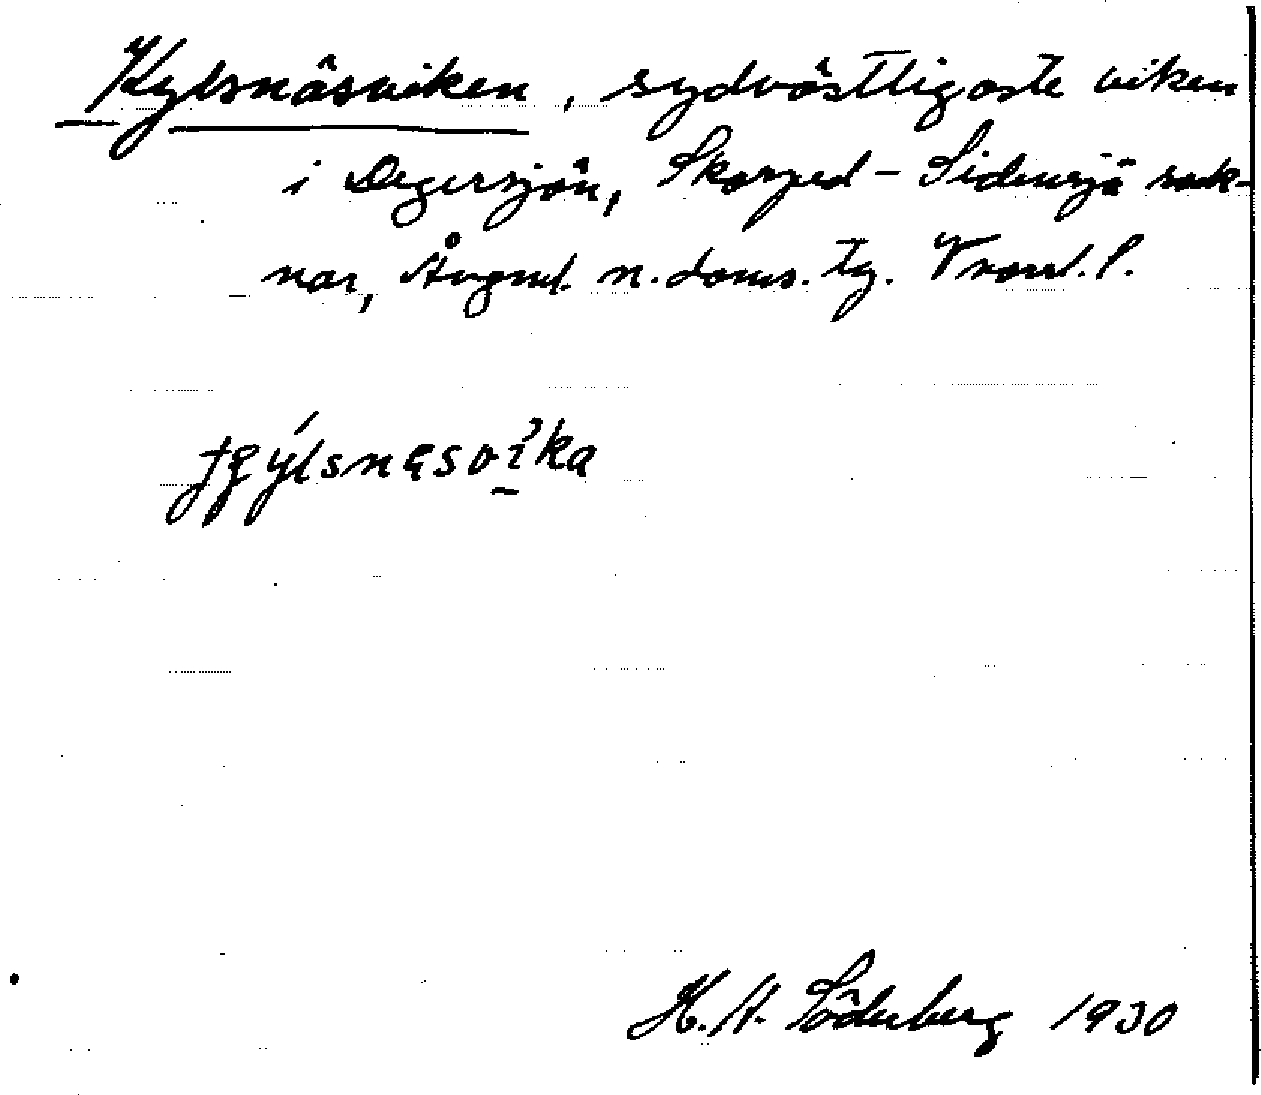 Kylsnäsviken, sydvästligaste viken
i Degersjön, Skorped - Sidensjö sock-
nar, Ångml. n. doms. tg. Vnorrl. l.
H. A. Söderberg 1930